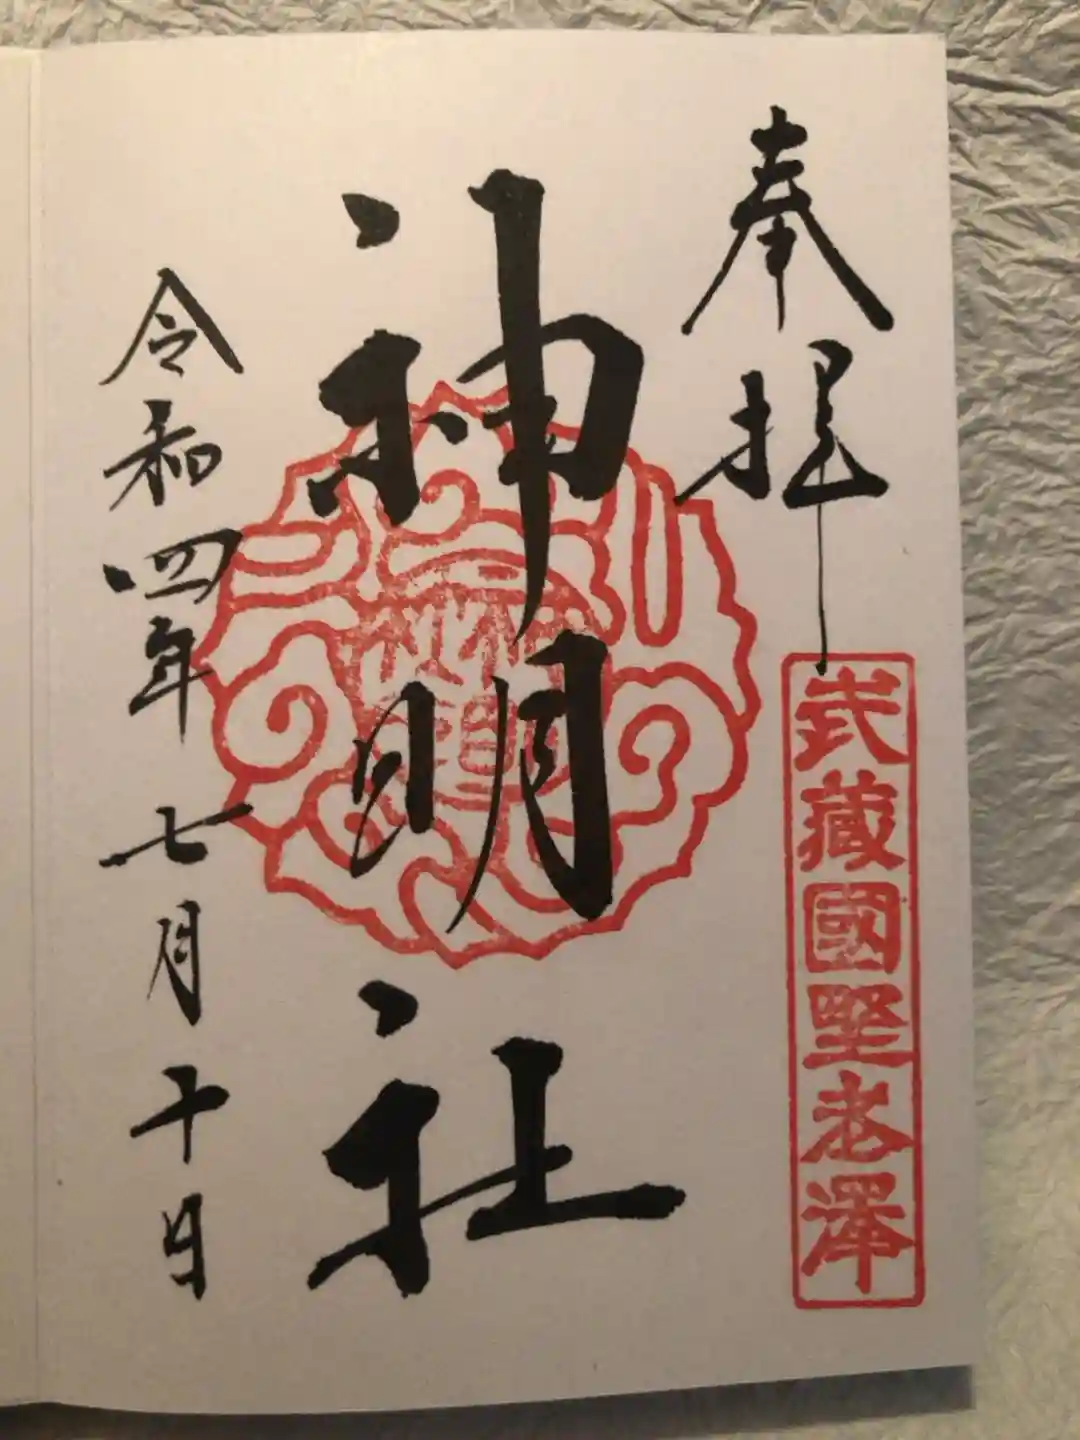 奉拝
武藏國野老澤
神明社
令和四年七月十日